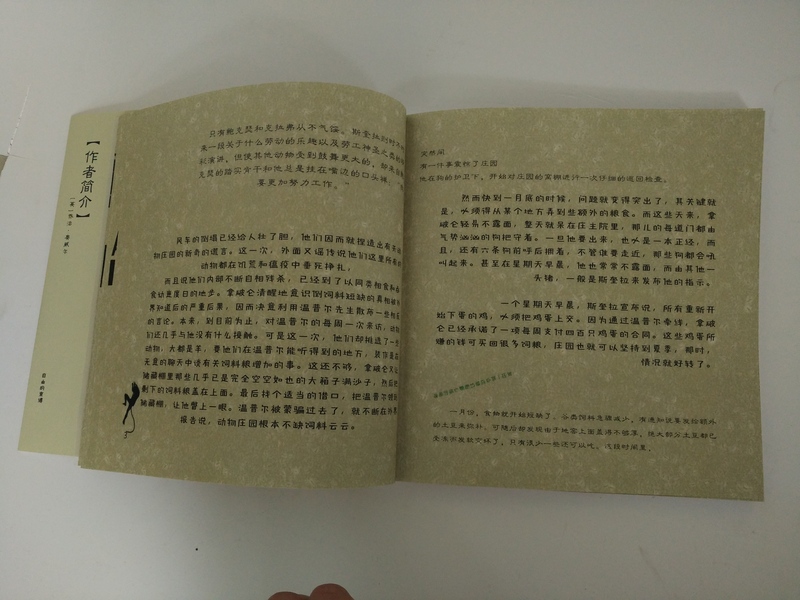 【作者简介】
自由的言堂
只有鲍克瑟和克拉弗从不气馁。斯奎拉则时不
来一段关于什么劳动的乐趣以及劳工神圣之类的
彩演讲,但使其他动物受到鼓舞更大的,却来自
克瑟的踏实肯干和他总是挂在嘴边的口头禅:
要更加努力工作。”
风车的倒塌已经给人壮了胆,他们因而就捏造出有关
物庄园的新奇的谎言。这一次,外面又谣传说他们这里所有的
动物都在饥荒和瘟疫中垂死挣扎,
而且说他们内部不断自相残杀,已经到了以同类相食和
食幼崽度日的地步。拿破仑清醒地意识到饲料短缺的真相被外
界知道后的严重后果,因而决意利用温普尔先生散布一些相反
的言论。本来,到目前为止,对温普尔的每周一次来访,动物
们还几乎与他没有什么接触。可是这一次,他们却挑选了一些
动物,大都是羊,要他们在温普尔能听得到的地方,装作是在
无意的聊天中谈有关饲料粮增加的事。这还不够,拿破仑又让
储藏棚里那些几乎已是完全空空如也的大箱子满沙子,然后把
剩下的饲料粮盖在上面。最后找个适当的借口,把温普尔领到
储藏棚,让他瞥上一眼。温普尔被蒙骗过去了,就不断在外界
报告说,动物庄园根本不缺饲料云云。
突然间
有一件事震惊了庄园
他在狗的护卫下,开始对庄园的窝棚进行一次仔细的巡回检查。
然而快到一月底的时候,问题就变得突出了,其关键就
是,必须得从某个地方弄到些额外的粮食。而这些天来,拿
破仑轻易不露面,整天就呆在庄主院里,那儿的每道门都由
气势汹汹的狗把守着。一旦他要出来,也必是一本正经,而
且,还有六条狗前呼后拥着,不管谁要走近,那些狗都会吼
叫起来。甚至在星期天早晨,他也常常不露面,而由其他一
头猪,一般是斯奎拉来发布他的指示。
一个星期天早晨,斯奎拉宣布说,所有重新开
始下蛋的鸡,必须把鸡蛋上交。因为通过温普尔牵线,拿破
仑已经承诺了一项每周支付四百只鸡蛋的合同。这些鸡蛋所
赚的钱可买回很多饲粮,庄园也就可以坚持到夏季,那时,
情况就好转了。
一月份,食物就开始短缺了。谷类饲料急骤减少,有通知说要发给额外
的土豆来弥补。可随后却发现由于地窖上面盖得不够厚,绝大部分土豆都已
受冻而发软变坏了,只有很少一些还可以吃。这段时间里,